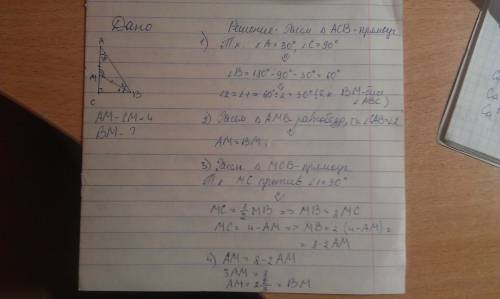 Дано
Решение. Рассм Δ ACB-прямоуг.
A
M
C
B
1) Т.к. ∠A=30°, ∠C=90°
⇓
∠B=180°-90°-30°=60°
∠2=∠1=60°:2=30° (т.к. BM-бис
∠ABC)
AM-CM=4
BM-?
2) Рассм Δ AMB-равнобедр, т.к. ∠A=∠2
⇓
AM=BM
3) Рассм Δ MCB-прямоуг
Т.к. MC против ∠1=30°
⇓
MC=½MB => MB=2MC
MC=4-AM => MB=2(4-AM)=
=8-2AM
4) AM=8-2AM
3AM=8
AM=2⅔=BM